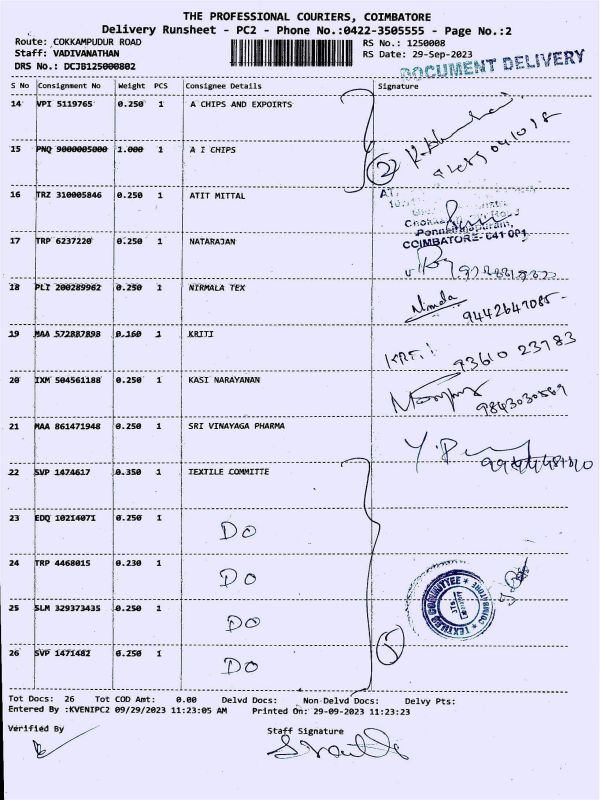 THE PROFESSIONAL COURIERS, COIMBATORE
Delivery Runsheet - PC2 - Phone No.:0422-3505555 - Page No.:2
Route: COKKAMPUDUR ROAD RS No.: 1250008
Staff: VADIVANATHAN RS Date: 29-Sep-2023
DRS No.: DCJB125000802 DOCUMENT DELIVERY
S No Consignment No Weight PCS Consignee Details Signature
14 VPI 5119765 0.250 1 A CHIPS AND EXPOIRTS
15 PNQ 9000005000 1.000 1 A I CHIPS
2
16 TRZ 310005846 0.250 1 ATIT MITTAL
Ponnaiyarajapuram,
COIMBATORE-641 001
17 TRP 6237220 0.250 1 NATARAJAN
18 PLI 200289962 0.250 1 NIRMALA TEX
Nirmala 9442647085-
19 MAA 572887898 0.160 1 KRITI
93610 23783
20 IXM 504561188 0.250 1 KASI NARAYANAN
9843030569
21 MAA 861471948 0.250 1 SRI VINAYAGA PHARMA
22 SVP 1474617 0.350 1 TEXTILE COMMITTE
23 EDQ 10214071 0.250 1 DO
24 TRP 4468015 0.230 1 DO
TEXTILES COMMITTEE * COIMBATORE *
25 SLM 329373435 0.250 1 DO
26 SVP 1471482 0.250 1 DO
5
Tot Docs: 26 Tot COD Amt: 0.00 Delvd Docs: Non-Delvd Docs: Delvy Pts:
Entered By :KVENIPC2 09/29/2023 11:23:05 AM Printed On: 29-09-2023 11:23:23
Verified By Staff Signature